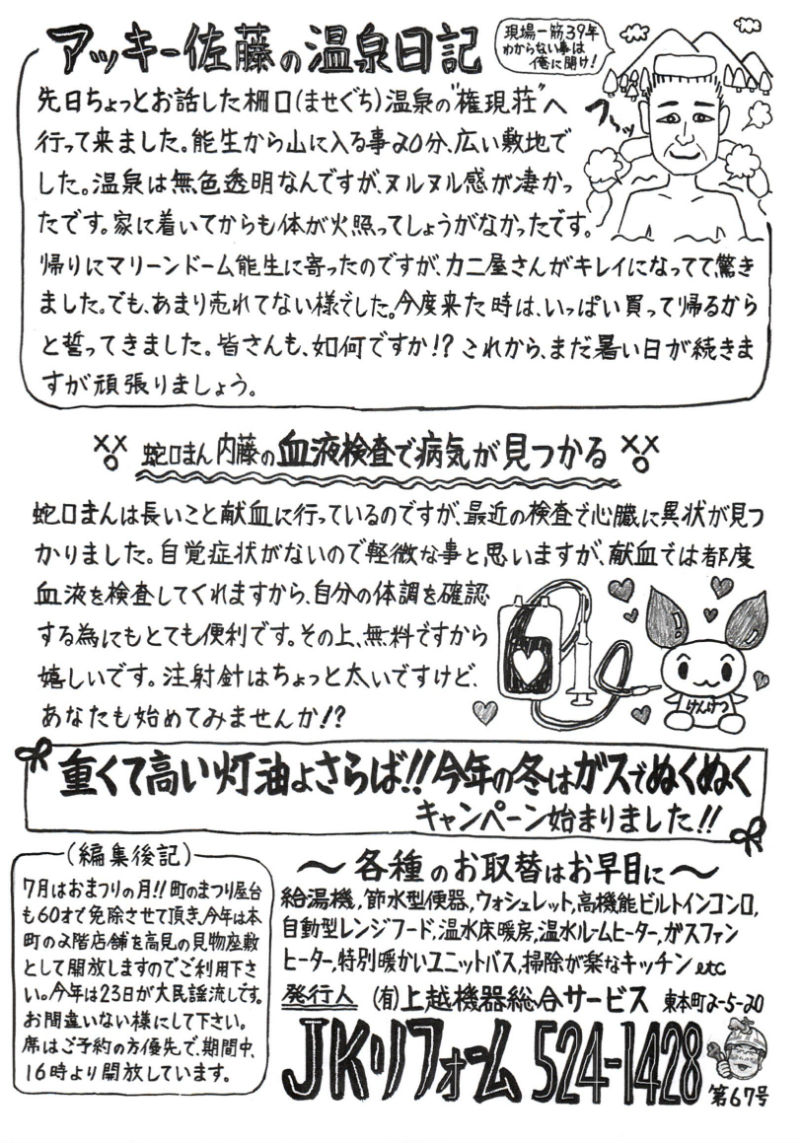 アッキー佐藤の温泉日記
現場一筋39年
わからない事は
俺に聞け!
先日ちょっとお話した柵口(ませぐち)温泉の"権現荘"へ
フゥーッ
行って来ました。能生から山に入る事20分、広い敷地で
した。温泉は無色透明なんですが、ヌルヌル感が凄かっ
たです。家に着いてからも体が火照ってしょうがなかったです。
帰りにマリーンドーム能生に寄ったのですが、カニ屋さんがキレイになってて、驚き
ました。でも、あまり売れてない様でした。今度来た時は、いっぱい買って帰るから
と誓ってきました。皆さんも、如何ですか!? これから、まだ暑い日が続きま
すが頑張りましょう。
蛇口まん内藤の血液検査で病気が見つかる
蛇口まんは長いこと献血に行っているのですが、最近の検査で心臓に異状が見つ
かりました。自覚症状がないので軽微な事と思いますが、献血では都度
血液を検査してくれますから、自分の体調を確認
する為にもとても便利です。その上、無料ですから
嬉しいです。注射針はちょっと太いですけど、
あなたも始めてみませんか!?
けんけつ
重くて高い灯油よさらば!!今年の冬はガスでぬくぬく
キャンペーン始まりました!!
(編集後記)
7月はおまつりの月!!町のまつり屋台
も60才で免除させて頂き、今年は本
町の2階店舗を高見の見物座敷
として開放しますのでご利用下さ
い。今年は23日が大民謡流しです。
お間違いない様にして下さい。
席はご予約の方優先で、期間中、
16時より開放しています。
〜各種のお取替はお早目に〜
給湯機,節水型便器,ウォシュレット,高機能ビルトインコンロ,
自動型レンジフード,温水床暖房,温水ルームヒーター,ガスファン
ヒーター,特別暖かいユニットバス,掃除が楽なキッチンetc
発行人 (有)上越機器総合サービス 東本町2-5-20
JKリフォーム 524-1428
第67号